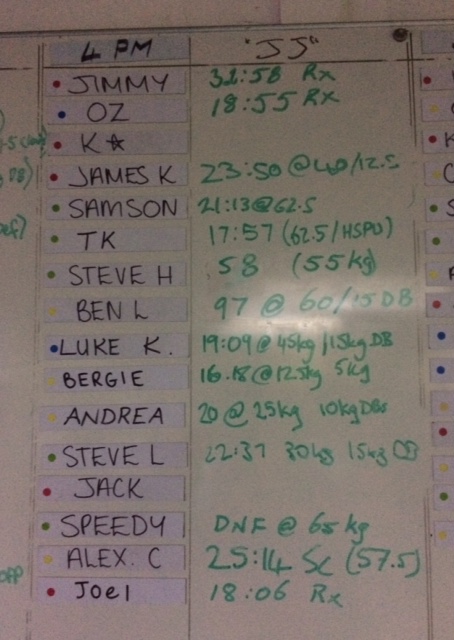 4 PM "JJ"
JIMMY 31:58 Rx
OZ 18:55 Rx
K☆
JAMES K 23:50 @40/12.5
SAMSON 21:13@62.5
TK 17:57 (62.5/HSPU)
STEVE H 58 (55kg)
BEN L 97 @ 60/15 DB
LUKE K. 19:09@ 45kg/15kg DB
BERGIE 16.18@12.5kg 5kg
ANDREA 20 @ 25kg 10kg DBs
STEVE L 22:37 30kg 15kg DB
JACK
SPEEDY DNF @ 65 kg
ALEX. C 25:14 Sc (57.5)
Joel 18:06 Rx